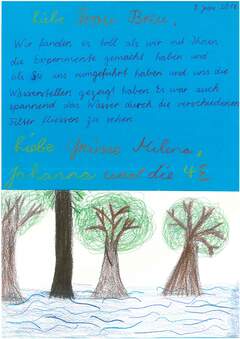 5 Juni 2018
Liebe Frau Breu,
Wir fanden es toll als wir mit Ihnen
die Experimente gemacht haben und
als Sie uns rumgeführt haben und uns die
Wasserstellen gezeigt haben. Es war auch
spannend das Wasser durch die verschiedenen
Filter fliessen zu sehen.
Liebe Grüsse Milena,
Johanna und die 4E